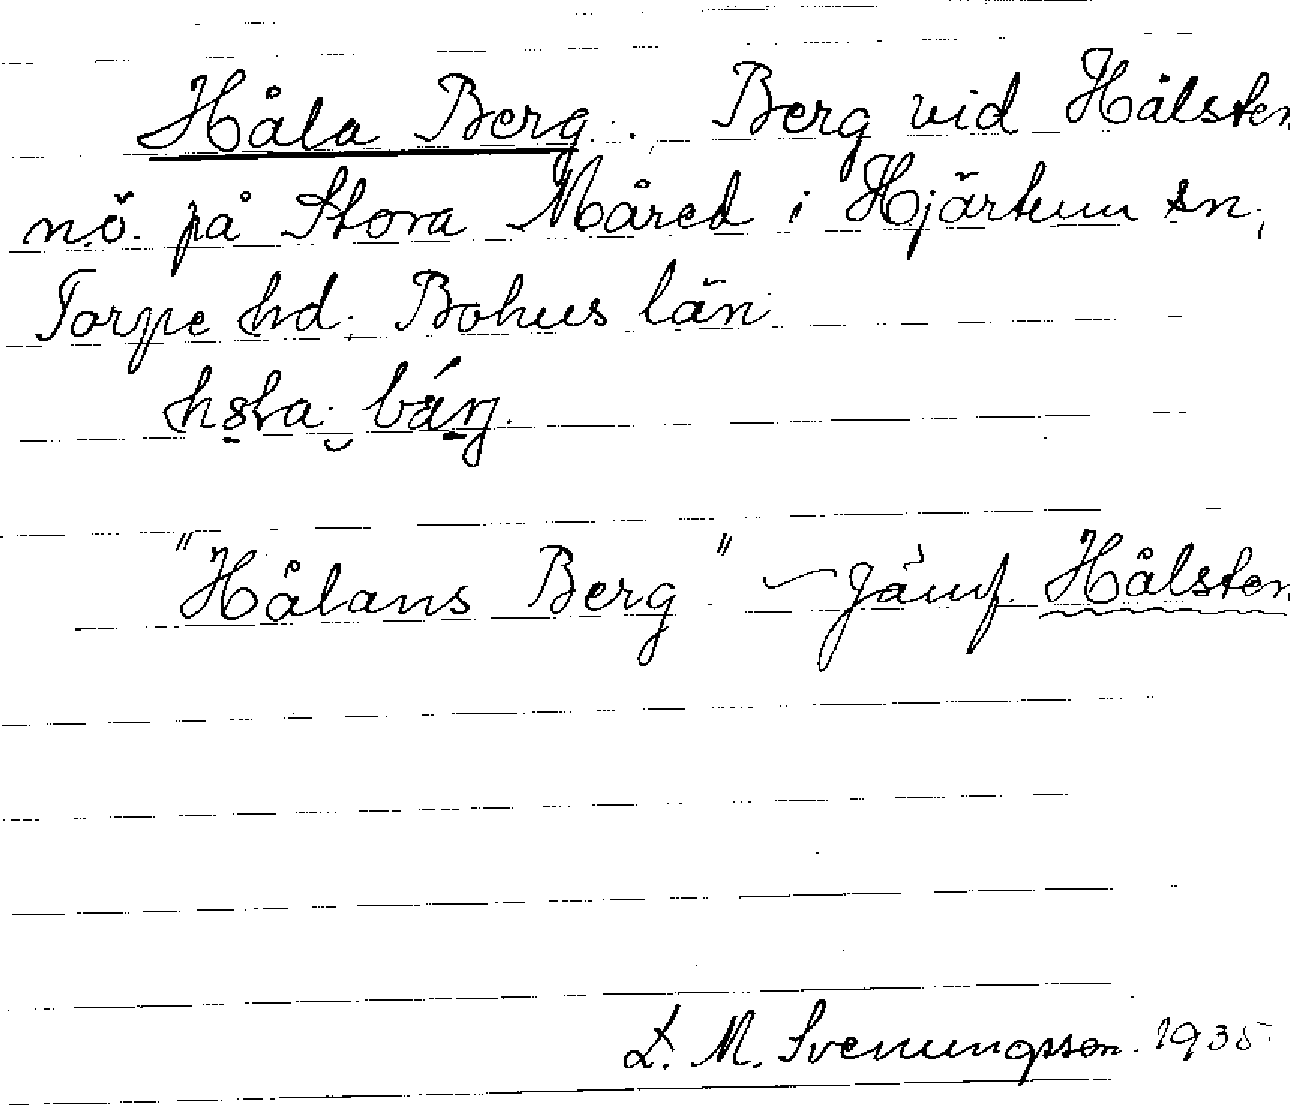 Håla Berg. Berg vid Hålsten
nö. på Stora Måred i Hjärtum sn.,
Torpe hd. Bohus län

"Hålans Berg" – Jämf. Hålsten
L. M. Svenungsson. 1935